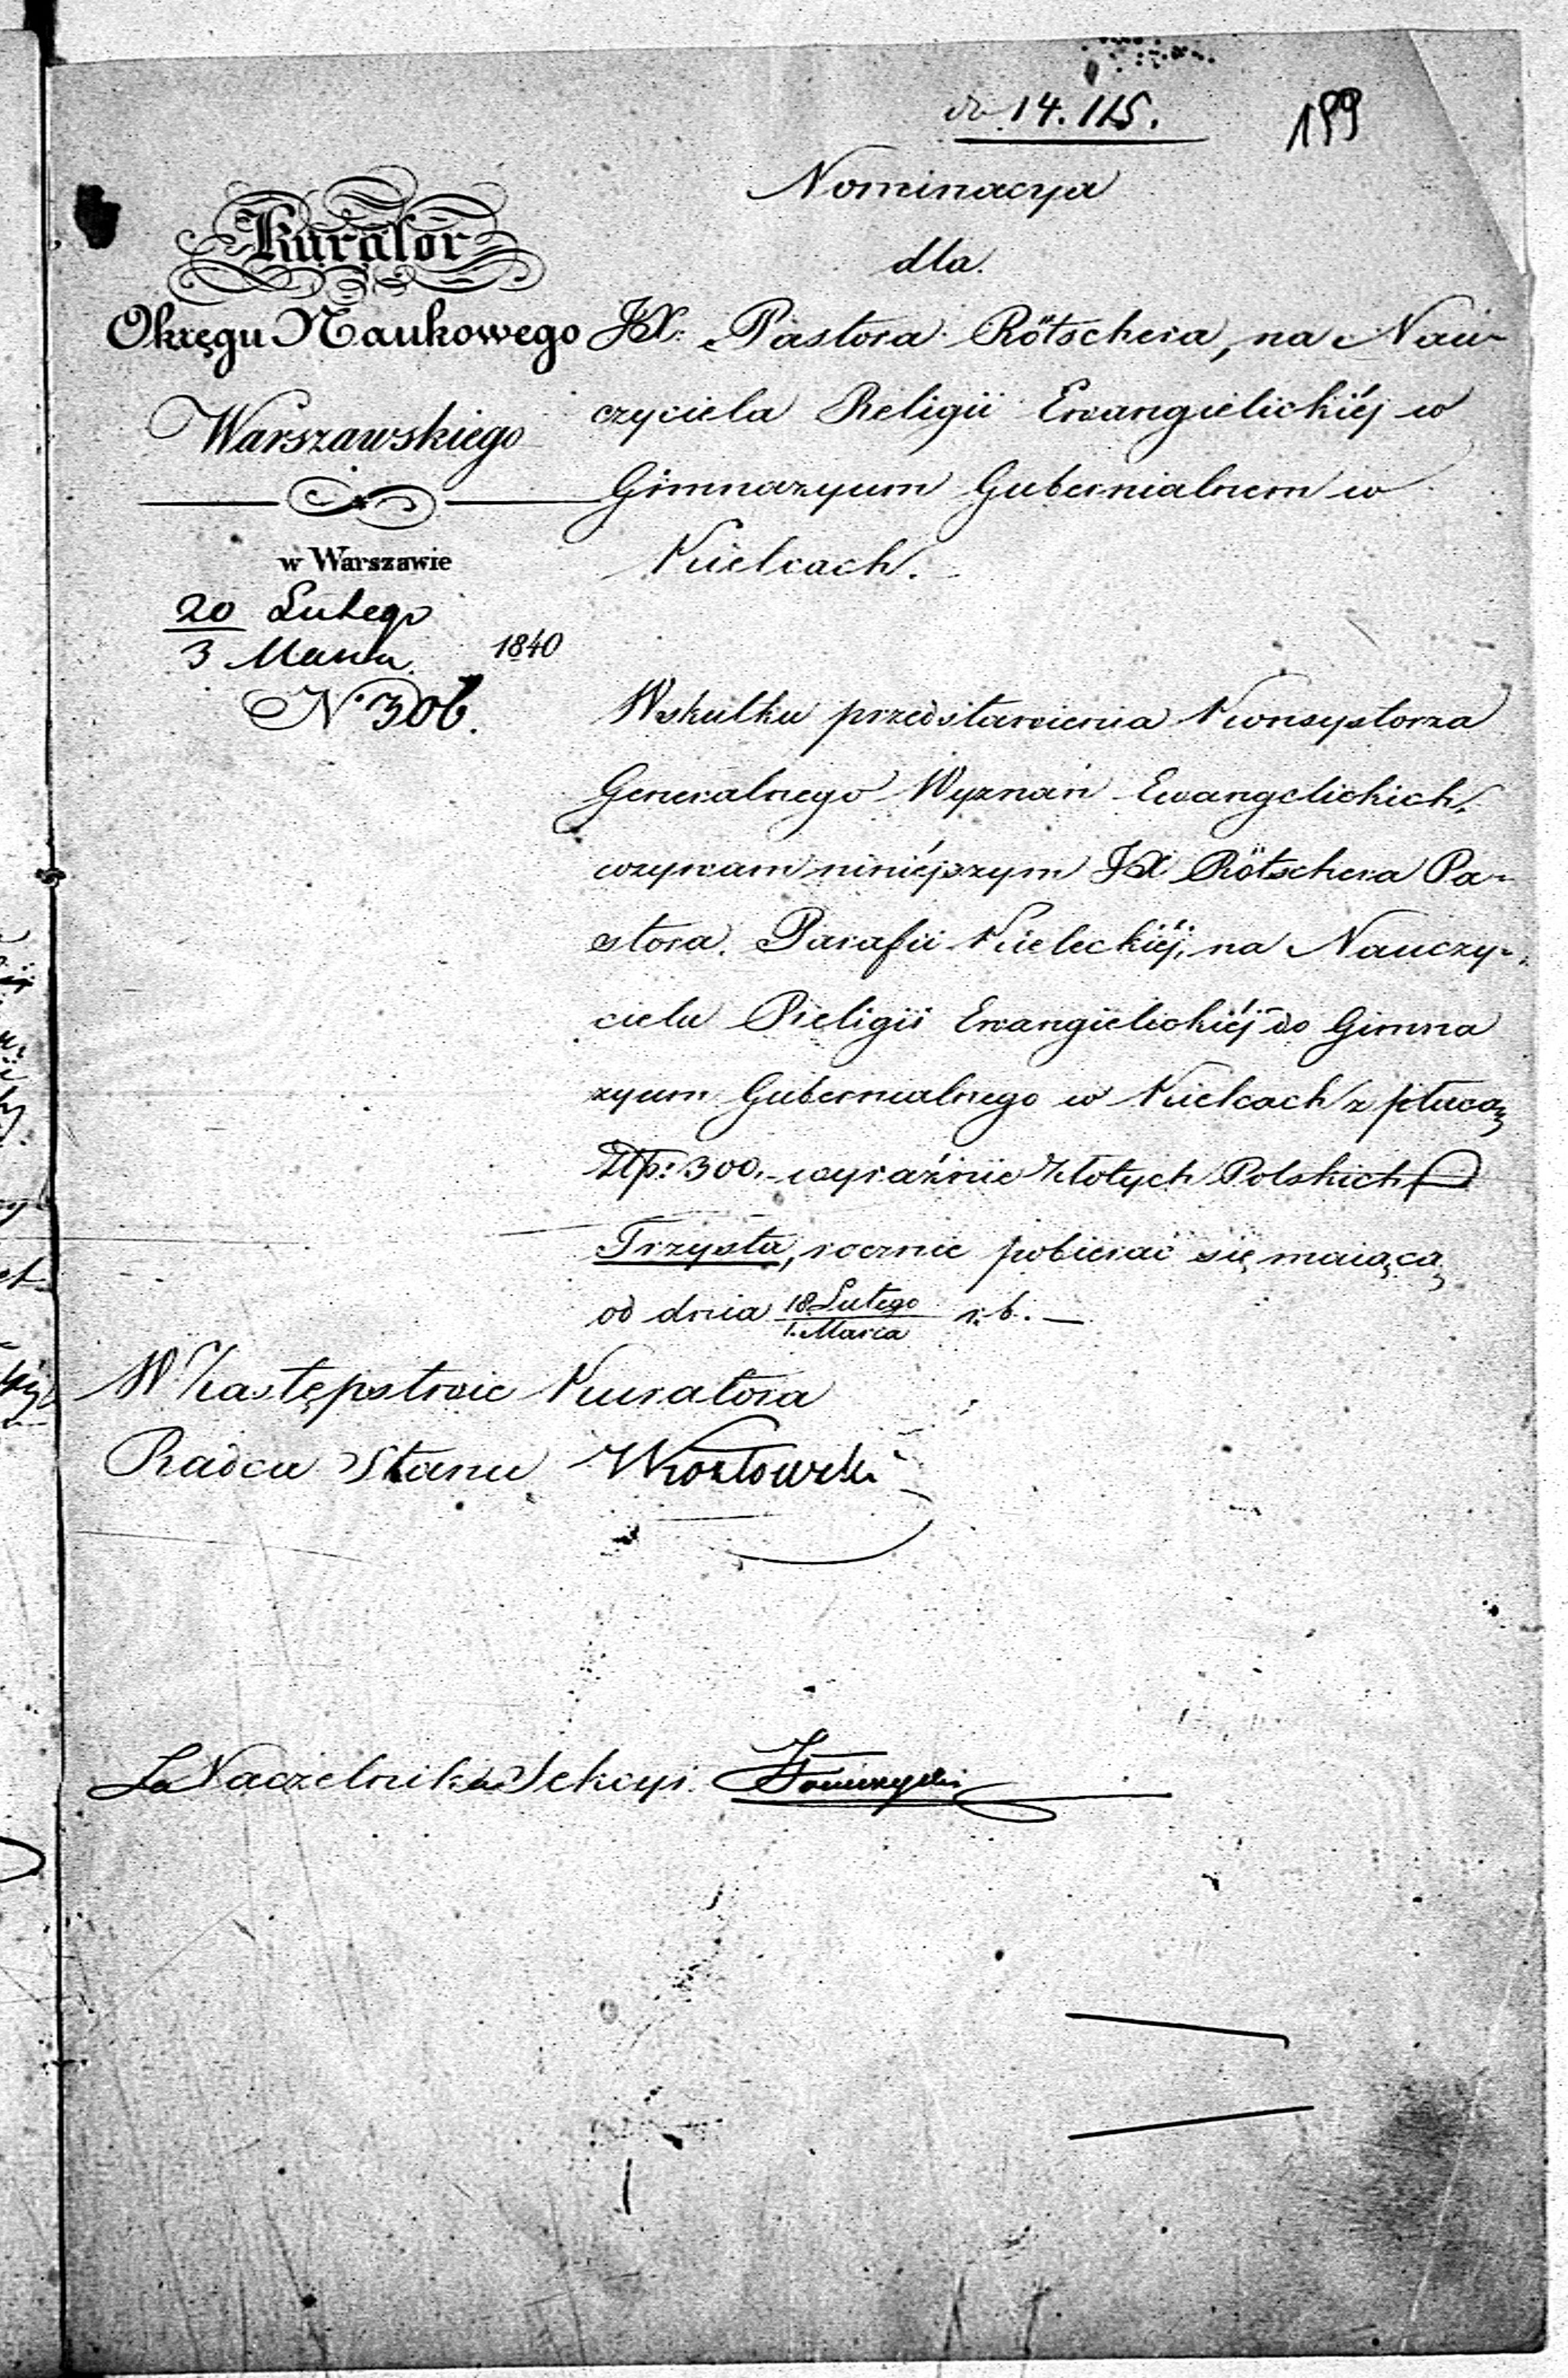 do 14.115.
199
Nominacya
dla
Kurator
Okręgu Naukowego
Warszawskiego
w Warszawie
20 Lutego
3 Marca 1840
N. 306.
JX. Pastora Rötschera, na Nau-
czyciela Religii Ewangielickiéj w
Gimnazyum Gubernialnem w
Kielcach.
Wskutku przedstawienia Konsystorza
Generalnego Wyznań Ewangelickich,
wzywam niniéjszym JX Rötschera Pa-
stora Parafii Kieleckiéj, na Nauczy-
ciela Religii Ewangielickiéj do Gimna
zyum Gubernialnego w Kielcach z płacą
Złp: 300. wyraźnie Złotych Polskich
Trzysta, rocznie pobierać się maiącą
od dnia 18 Lutego r. b. —
1. Marca
W Zastępstwie Kuratora
Radca Stanu Kozłowski
Za Naczelnika Sekcyi